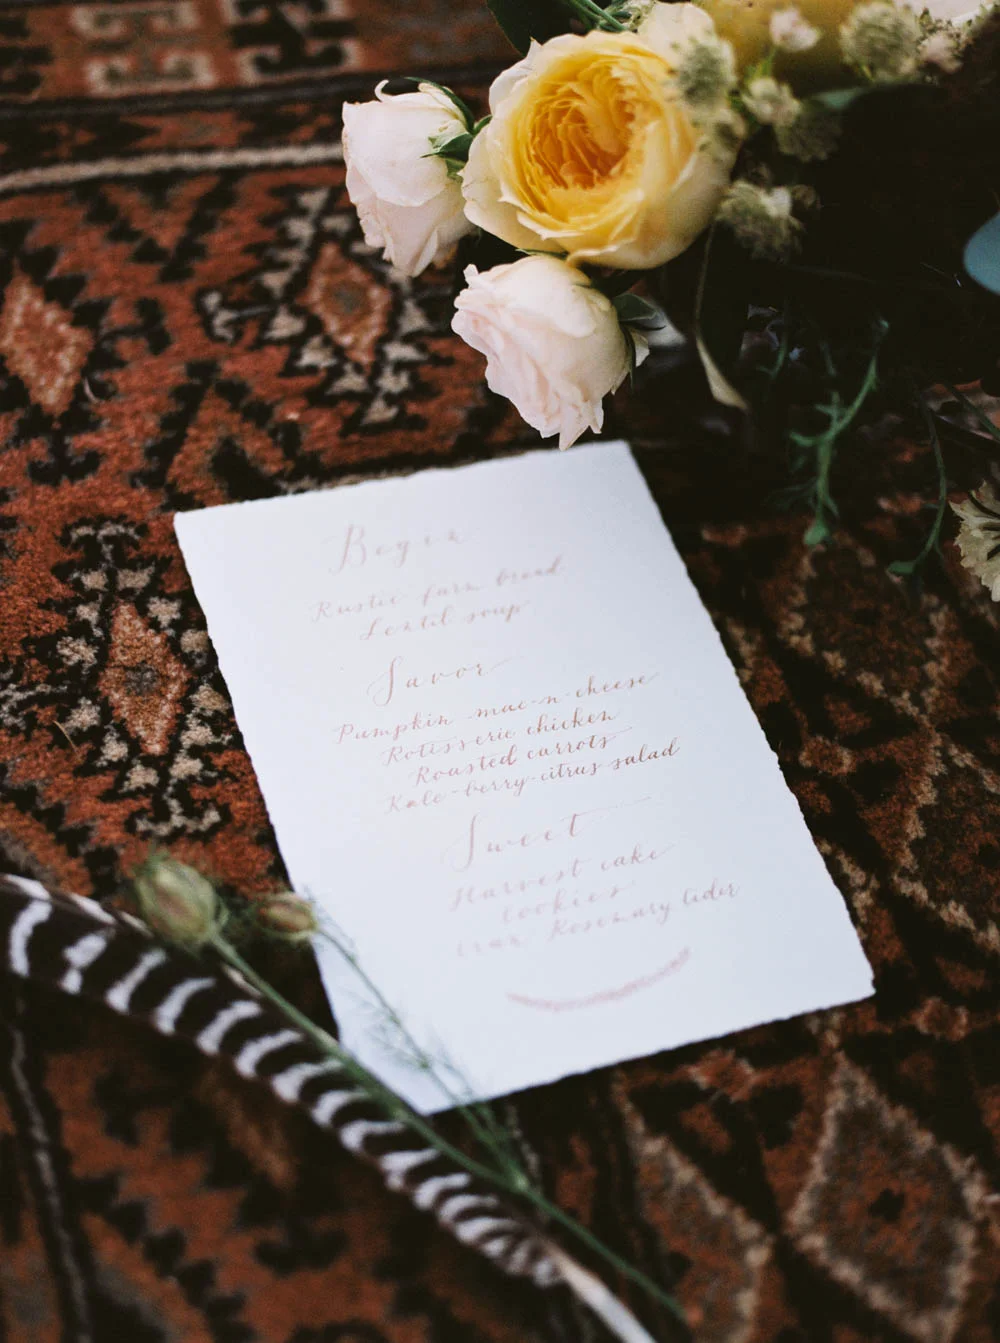 Begin
Rustic farm bread
Lentil soup
Savor
Pumpkin mac-n-cheese
Rotisserie chicken
Roasted carrots
Kale-berry-citrus salad
Sweet
Harvest cake
Cookies
Rosemary Cider